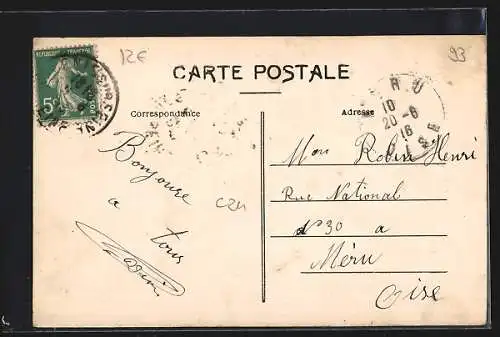 12€
93
REPUBLIQUE FRANÇAISE
5c
CARTE POSTALE
Correspondance
Adresse
MERU
10
20-6
16
OISE
Bonjoure
a
tous
Robin
C24
Mon Robin Henri
Rue National
N°30 a
Méru
Oise